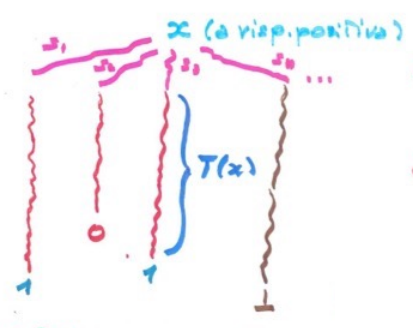 x (a risp. positiva)
s₁ s₂ s₃ sₙ ...
T(x)
0
1 1